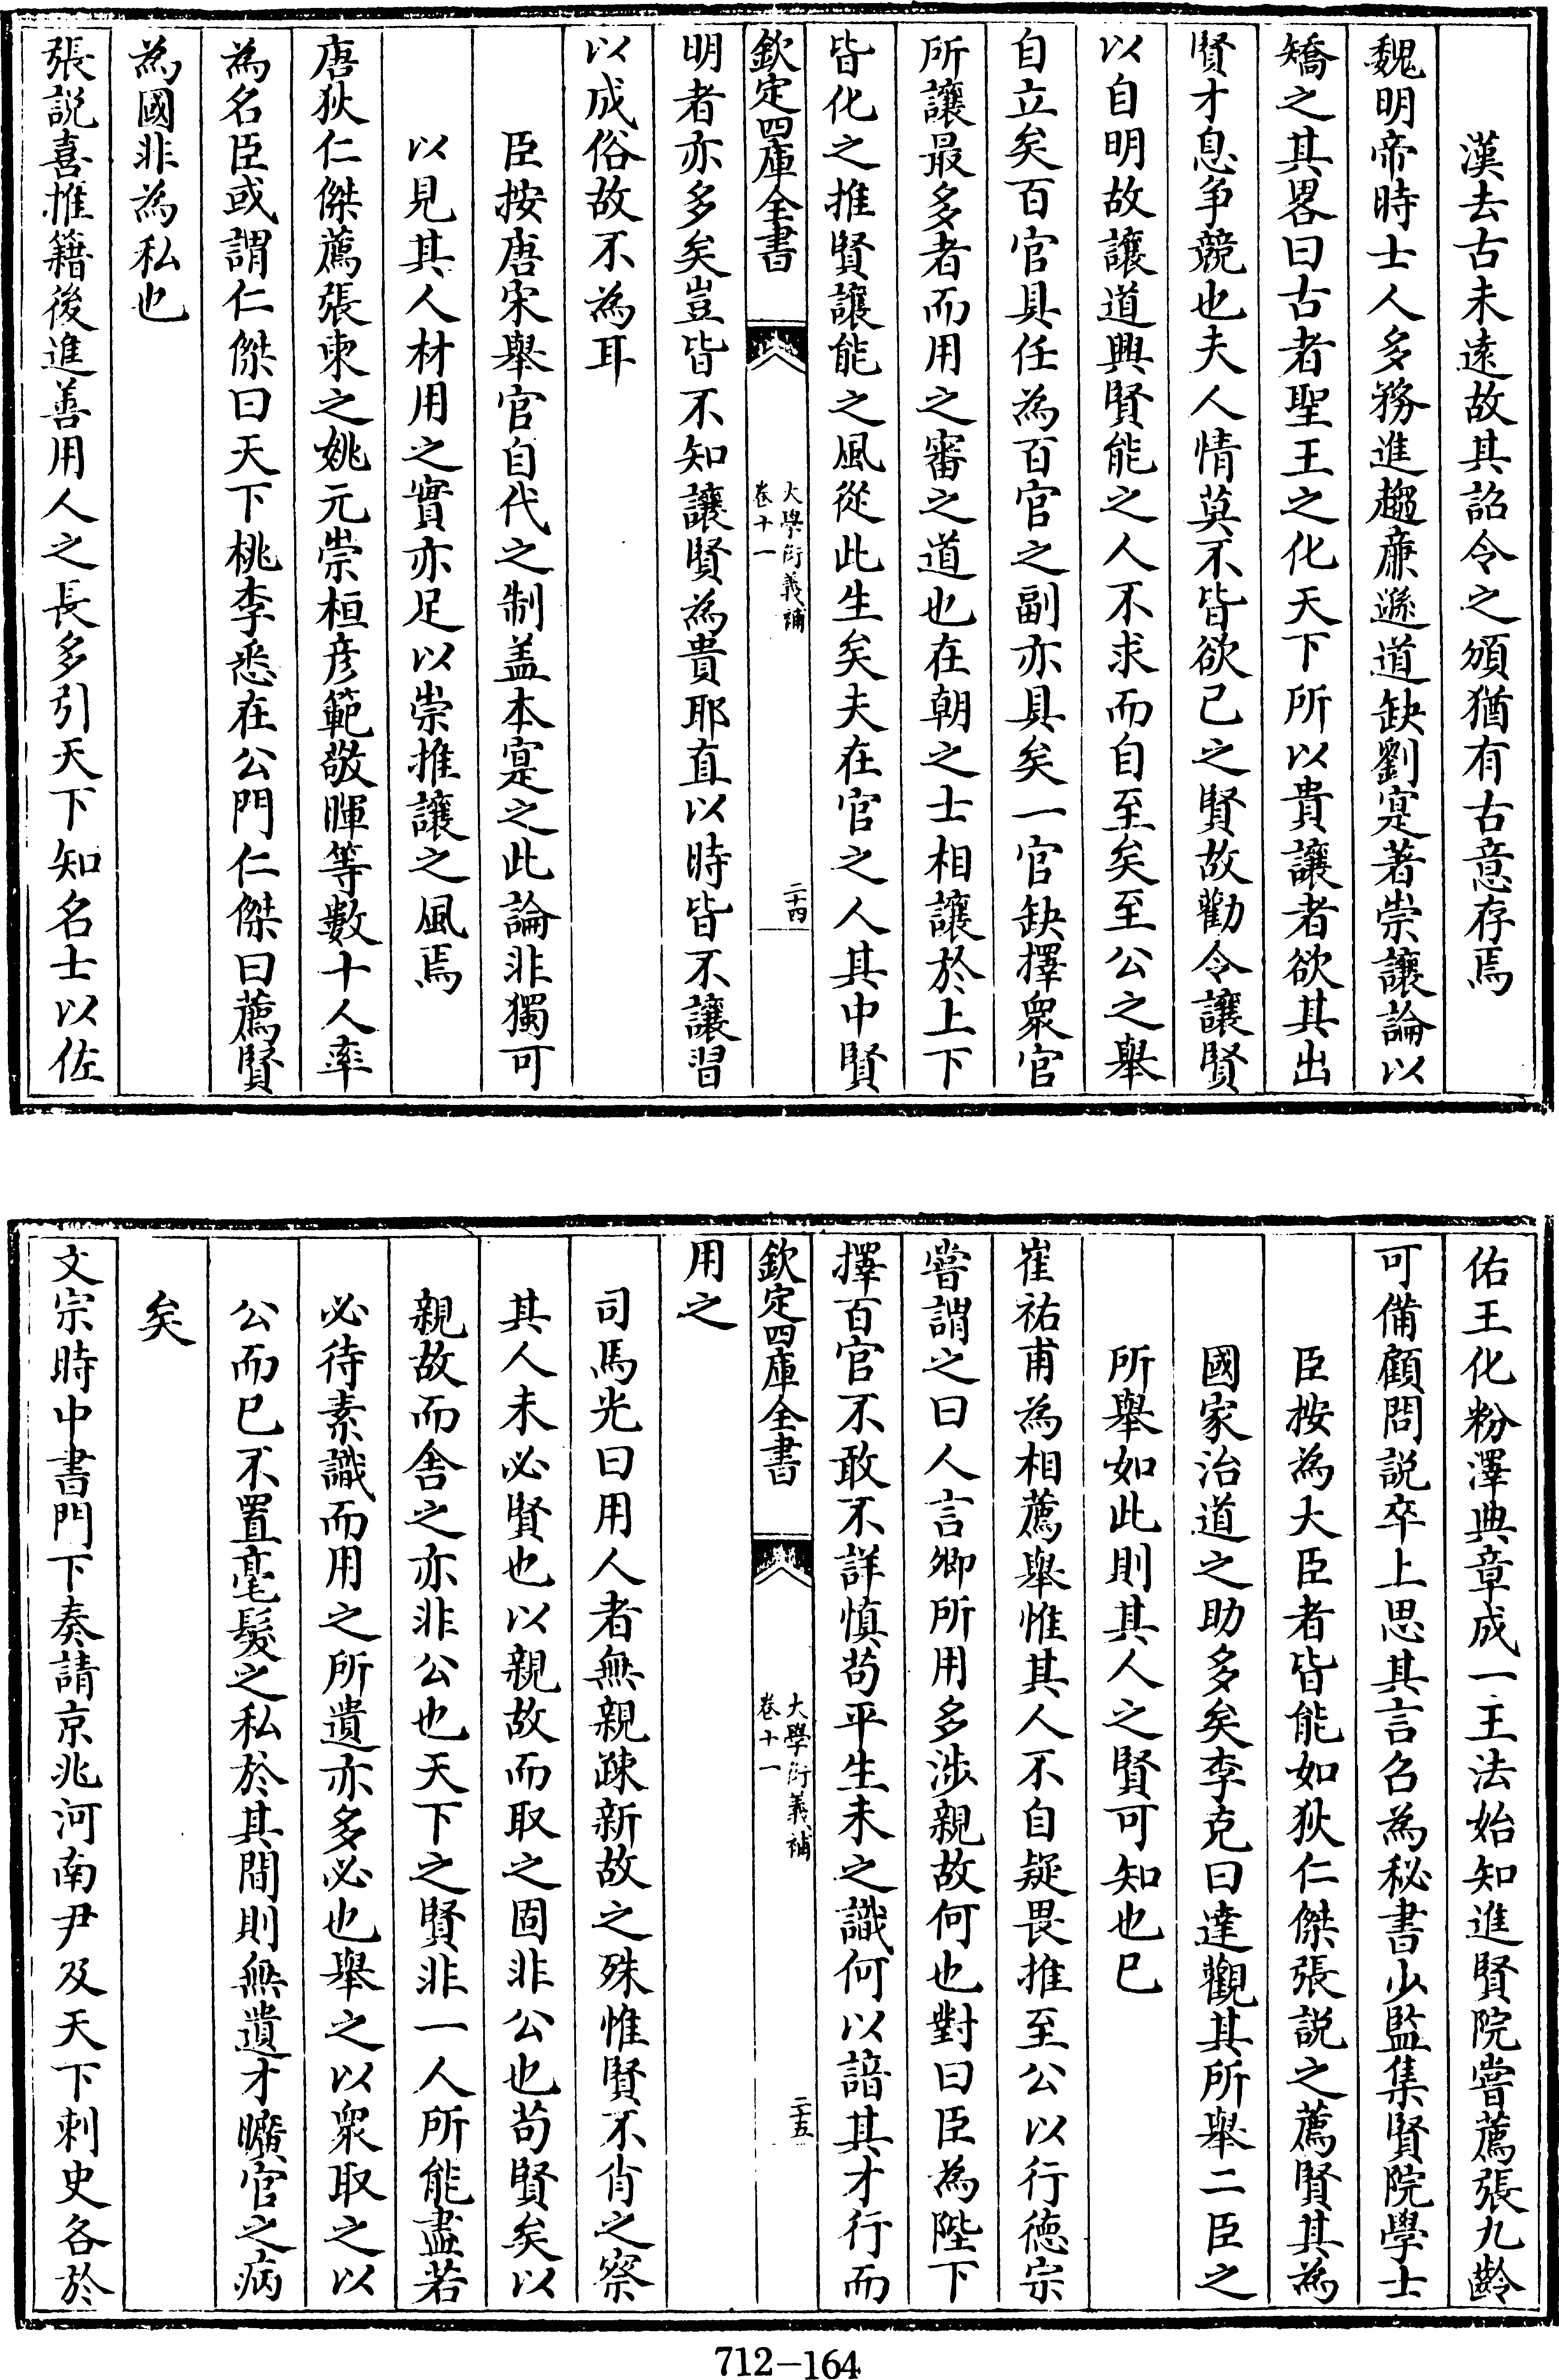 漢去古未逺故其詔令之頒猶有古意存焉
魏明帝時士人多務進趨廉遜道缺劉寔著崇讓論以
矯之其畧曰古者聖王之化天下所以貴讓者欲其出
賢才息爭競也夫人情莫不皆欲己之賢故勸令讓賢
以自明故讓道興賢能之人不求而自至矣至公之舉
自立矣百官具任為百官之副亦具矣一官缺擇衆官
所讓最多者而用之審之道也在朝之士相讓於上下
皆化之推賢讓能之風從此生矣夫在官之人其中賢
欽定四庫全書
大學衍義補
卷十一
二十四
明者亦多矣豈皆不知讓賢為貴耶直以時皆不讓習
以成俗故不為耳
臣按唐宋舉官自代之制盖本寔之此論非獨可
以見其人材用之實亦足以崇推讓之風焉
唐狄仁傑薦張柬之姚元崇桓彦範敬暉等數十人率
為名臣或謂仁傑曰天下桃李悉在公門仁傑曰薦賢
為國非為私也
張説喜推籍後進善用人之長多引天下知名士以佐
佑王化粉澤典章成一王法始知進賢院嘗薦張九齡
可備顧問説卒上思其言召為秘書少監集賢院學士
臣按為大臣者皆能如狄仁傑張説之薦賢其為
國家治道之助多矣李克曰達觀其所舉二臣之
所舉如此則其人之賢可知也已
崔祐甫為相薦舉惟其人不自疑畏推至公以行徳宗
嘗謂之曰人言卿所用多涉親故何也對曰臣為陛下
擇百官不敢不詳慎茍平生未之識何以諳其才行而
欽定四庫全書
大學衍義補
卷十一
二十五
用之
司馬光曰用人者無親疎新故之殊惟賢不肖之察
其人未必賢也以親故而取之固非公也茍賢矣以
親故而舍之亦非公也天下之賢非一人所能盡若
必待素識而用之所遺亦多必也舉之以衆取之以
公而已不置毫髮之私於其間則無遺才曠官之病
矣
文宗時中書門下奏請京兆河南尹及天下刺史各於
712—164